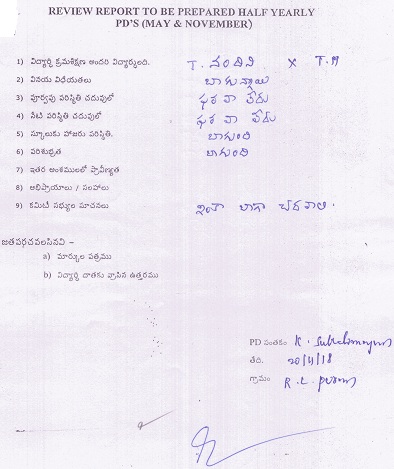 REVIEW REPORT TO BE PREPARED HALF YEARLY
PD'S (MAY & NOVEMBER)
1) విద్యార్థి క్రమశిక్షణ అందరి విద్యార్థులది. T. నందిని X T.M
2) వినయ విధేయతలు బాగున్నాయి
3) పూర్వపు పరిస్థితి చదువులో ఫర వా లేదు
4) నేటి పరిస్థితి చదువులో ఫర వా లేదు
5) స్కూలుకు హాజరు పరిస్థితి. బాగుంది
6) పరిశుభ్రత బాగుంది
7) ఇతర అంశములలో ప్రావీణ్యత
8) అభిప్రాయాలు / సలహాలు
9) కమిటీ సభ్యుల సూచనలు ఇంకా బాగా చదవాలి.
జతపర్చవలసినవి –
a) మార్కుల పత్రము
b) విద్యార్థి దాతకు వ్రాసిన ఉత్తరము
PD సంతకం K.
తేది. 20/4/18
గ్రామం R. L. puram